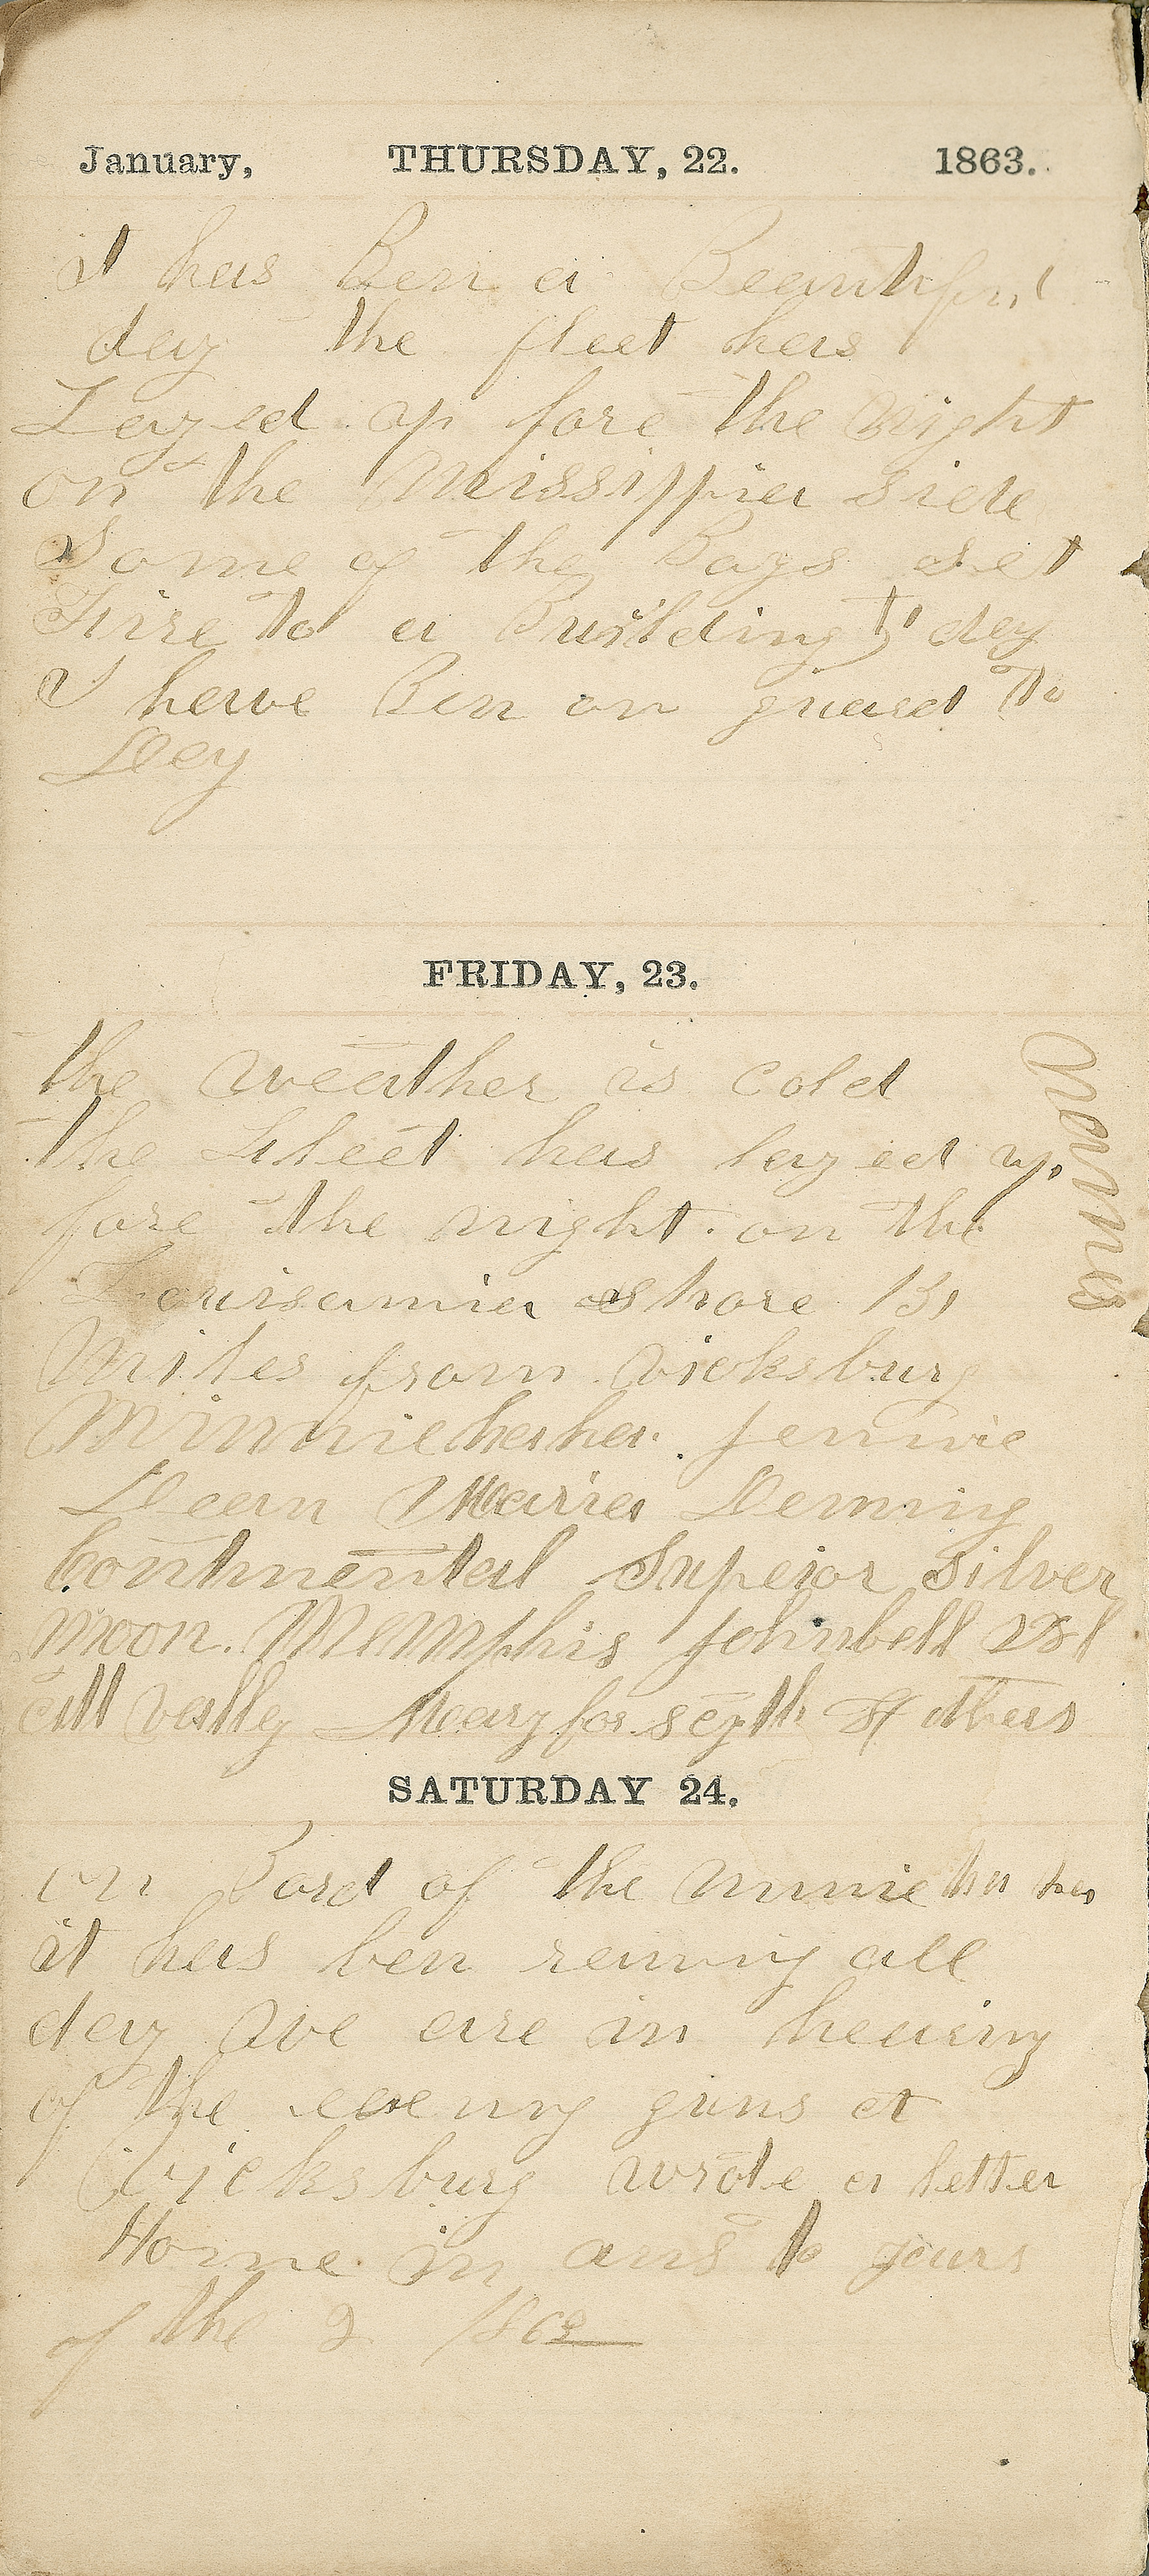 January, THURSDAY, 22. 1863.
it has Ben a Beautiful
day the fleet has
Layed up fore the night
on the Missippia side
Some of the Boys set
Fire to a Building to day
I have Ben on guard to
Day
FRIDAY, 23.
the weather is cold
the Fleet has layed up
fore the night on the
Louisania Shore 15
Miles from vicksburg
Minniehaha Jennie
Dean Maria Deming
Continental Supeior Silver
moon. Memphis John bell
valley Mary forseyth & others
names
SATURDAY 24.
on Bord of the Minnie ha ha
it has ben raining all
day we are in hearing
of the enemy guns at
Vicksburg wrote a letter
Home in ans to yours
of the 2